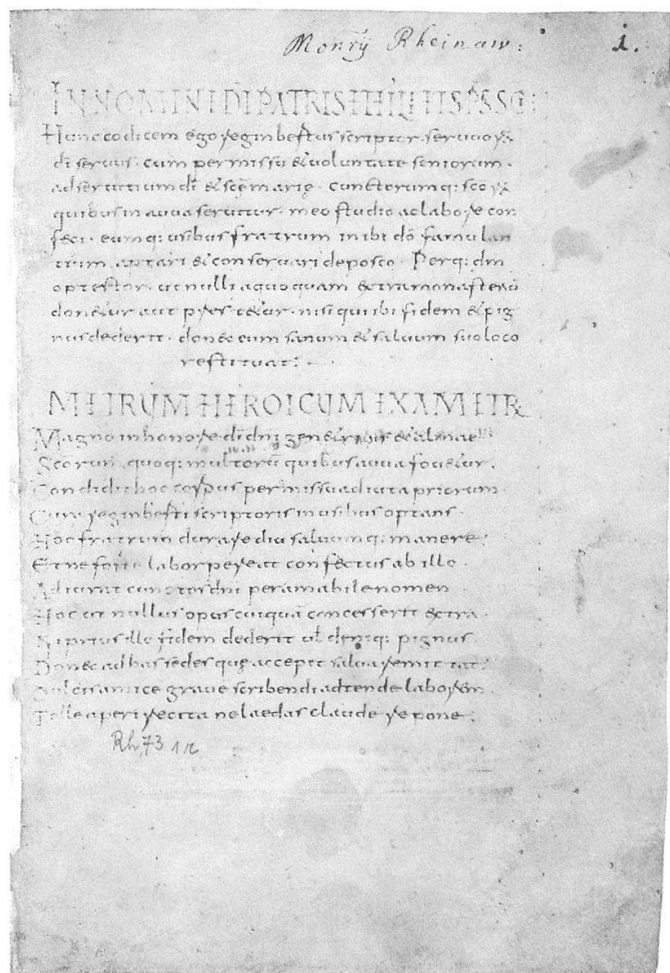 Monrÿ Rheinaw: 1.
IN NOMINE DI PATRIS ET FILII ET SPS SCI:
Hunc codicem ego reginbertus scriptor. seruorū
di seruus. cum permissu et uoluntate seniorum.
ad seruitium di et scē marię. cunctorumq: scorū
quibus in auua seruitur. meo studio ac labore con
feci. eumq: usibus fratrum inibi dō famulan
tium aptari et conseruari deposco. Perq: dm
optestor. ut nulli a quoquam extra monasteriū
donetur aut prestetur. nisi qui ibi fidem et pig
nus dederit. donec eum sanum et saluum suo loco
restituat:
METRUM HEROICUM EXAMETR
Magno in honore di dni genetricis et almae
Scorum quoq: multorū quibus auua fouetur.
Condidi hoc corpus permissu adiuta priorum
Cura reginberti scriptoris in usibus optans
Hoc fratrum durare diu saluumq: manere.
Et ne forte labor pereat confectus ab illo
Adiurat cunctos dni per amabile nomen
Hoc ut nullus opus cuiquā concesserit extra.
Ni prius ille fidem dederit ul deniq: pignus
Donec ad has sedes que accepit salua remittat.
Dulcis amice graue scribendi adtende laborem
Tolle aperi recita ne laedas claude repone.
Rh. 73 1r